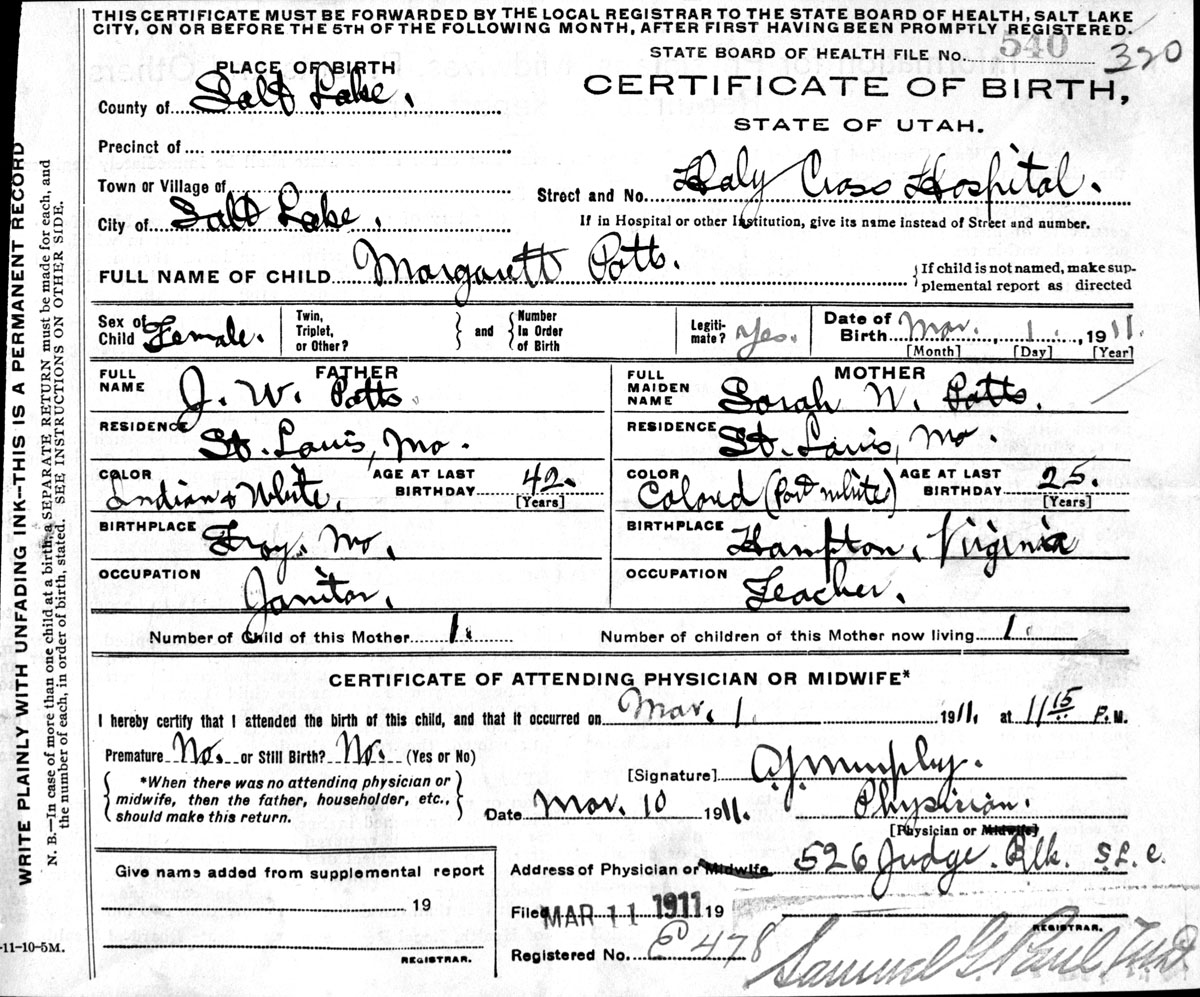 THIS CERTIFICATE MUST BE FORWARDED BY THE LOCAL REGISTRAR TO THE STATE BOARD OF HEALTH, SALT LAKE
CITY, ON OR BEFORE THE 5TH OF THE FOLLOWING MONTH, AFTER FIRST HAVING BEEN PROMPTLY REGISTERED.
STATE BOARD OF HEALTH FILE NO. 540 320
PLACE OF BIRTH
CERTIFICATE OF BIRTH,
County of Salt Lake.
STATE OF UTAH.
Precinct of
Town or Village of
Street and No. Holy Cross Hospital.
City of Salt Lake.
If in Hospital or other Institution, give its name instead of Street and number.
FULL NAME OF CHILD Margarett Potts.
{If child is not named, make sup-
plemental report as directed
Sex of Child Female.
Twin, Triplet, or Other?
} and {
Number In Order of Birth
Legiti-mate? Yes.
Date of Birth Mar. 1. , 1911.
[Month] [Day] [Year]
FATHER
FULL NAME J. W. Potts.
MOTHER
FULL MAIDEN NAME Sarah W. Potts.
RESIDENCE St. Louis, Mo.
RESIDENCE St. Louis, Mo.
COLOR Indian & White.
AGE AT LAST BIRTHDAY 42. [Years]
COLOR Colored (Part white)
AGE AT LAST BIRTHDAY 25. [Years]
BIRTHPLACE Troy, Mo.
BIRTHPLACE Hampton, Virginia
OCCUPATION Janitor.
OCCUPATION Teacher.
Number of Child of this Mother 1.
Number of children of this Mother now living 1.
CERTIFICATE OF ATTENDING PHYSICIAN OR MIDWIFE*
I hereby certify that I attended the birth of this child, and that it occurred on Mar. 1. 1911. at 11 15 P. M.
Premature No. or Still Birth? No. (Yes or No)
{*When there was no attending physician or
midwife, then the father, householder, etc.,
should make this return.}
[Signature] A. J. Murphy.
Date Mar. 10 1911.
Physician.
[Physician or Midwife]
Address of Physician or Midwife 526 Judge Blk. S. L. C.
Give name added from supplemental report
19
REGISTRAR.
Filed MAR 11 1911 19
REGISTRAR.
Registered No. 478
Samuel G. Paul, M.D.
-11-10-5M.
WRITE PLAINLY WITH UNFADING INK—THIS IS A PERMANENT RECORD
N. B.—In case of more than one child at a birth, a SEPARATE RETURN must be made for each, and
the number of each, in order of birth, stated. SEE INSTRUCTIONS ON OTHER SIDE.